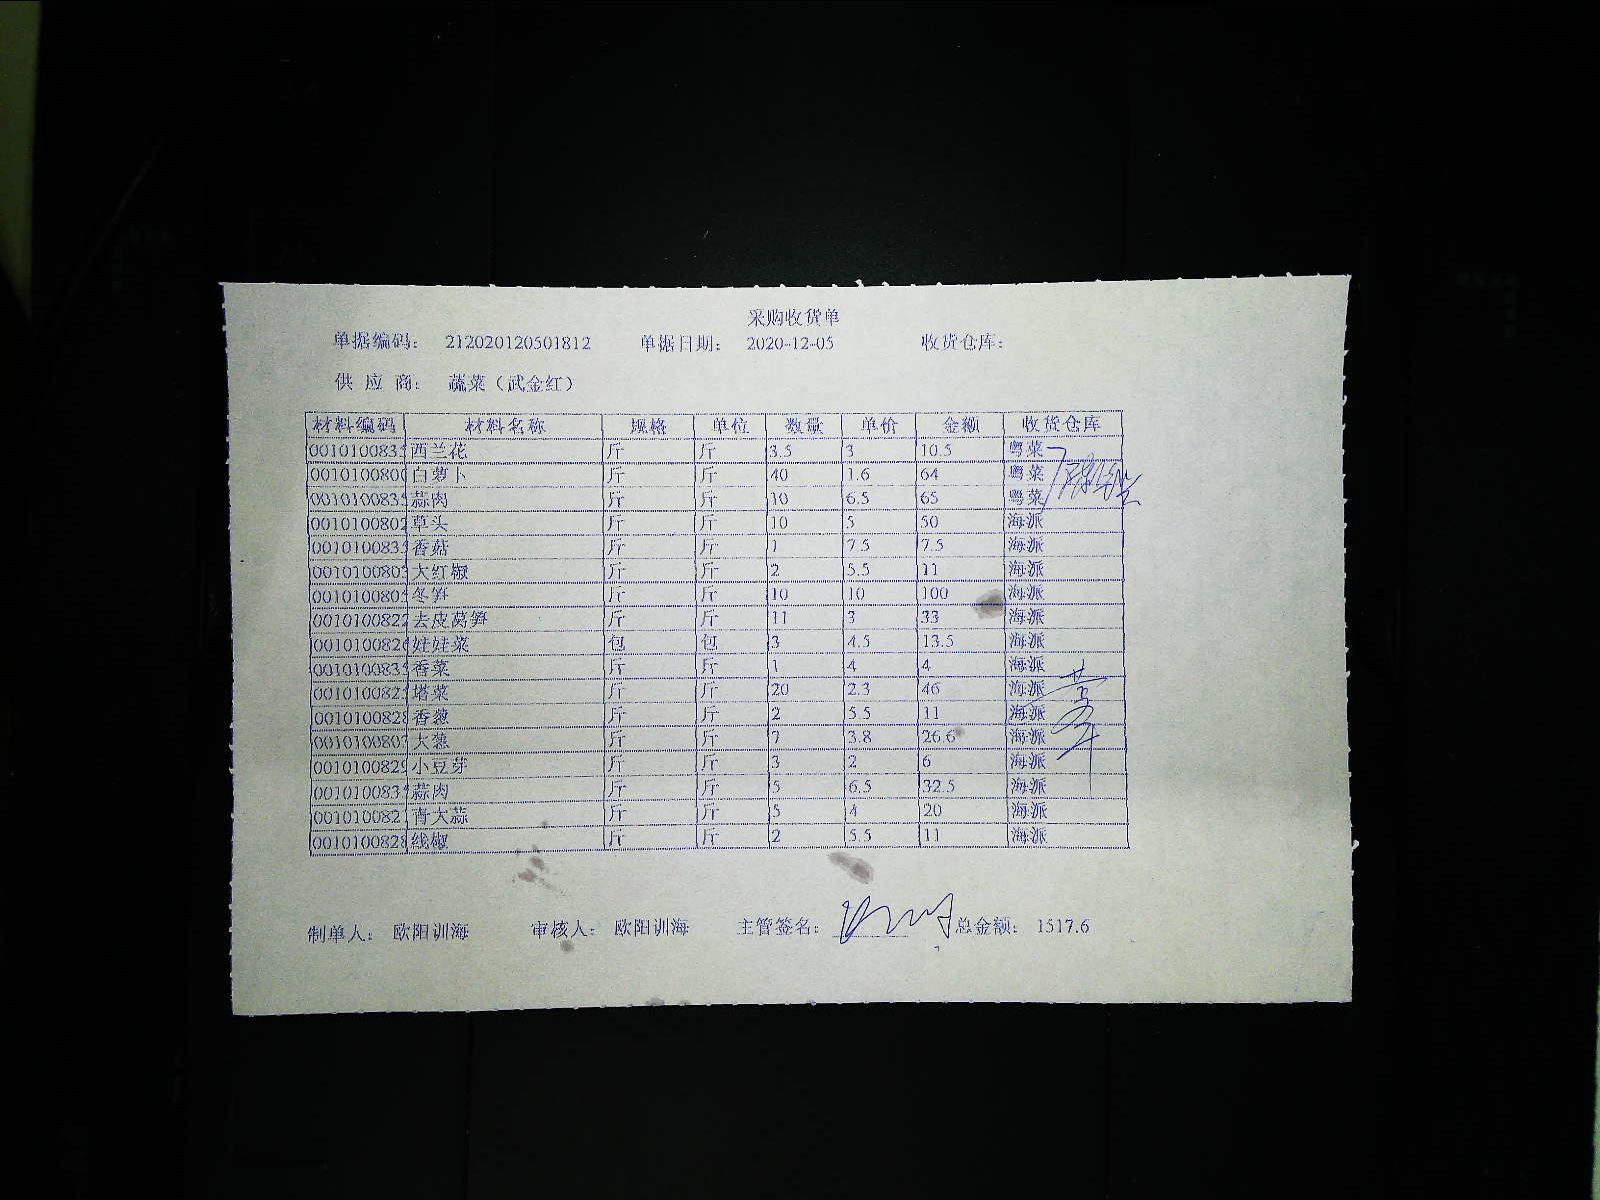 采购收货单
单据编码: 212020120501812 单据日期: 2020-12-05 收货仓库:
供 应 商: 蔬菜（武金红）
材料编码 材料名称 规格 单位 数量 单价 金额 收货仓库
0010100835 西兰花 斤 斤 3.5 3 10.5 粤菜
0010100800 白萝卜 斤 斤 40 1.6 64 粤菜
0010100835 蒜肉 斤 斤 10 6.5 65 粤菜
0010100802 草头 斤 斤 10 5 50 海派
0010100833 香菇 斤 斤 1 7.5 7.5 海派
0010100803 大红椒 斤 斤 2 5.5 11 海派
0010100805 冬笋 斤 斤 10 10 100 海派
0010100822 去皮莴笋 斤 斤 11 3 33 海派
0010100826 娃娃菜 包 包 3 4.5 13.5 海派
0010100835 香菜 斤 斤 1 4 4 海派
0010100825 塔菜 斤 斤 20 2.3 46 海派
0010100828 香葱 斤 斤 2 5.5 11 海派
0010100807 大葱 斤 斤 7 3.8 26.6 海派
0010100829 小豆芽 斤 斤 3 2 6 海派
0010100835 蒜肉 斤 斤 5 6.5 32.5 海派
001010082 青大蒜 斤 斤 5 4 20 海派
0010100828 线椒 斤 斤 2 5.5 11 海派
制单人: 欧阳训海 审核人: 欧阳训海 主管签名: 总金额: 1517.6